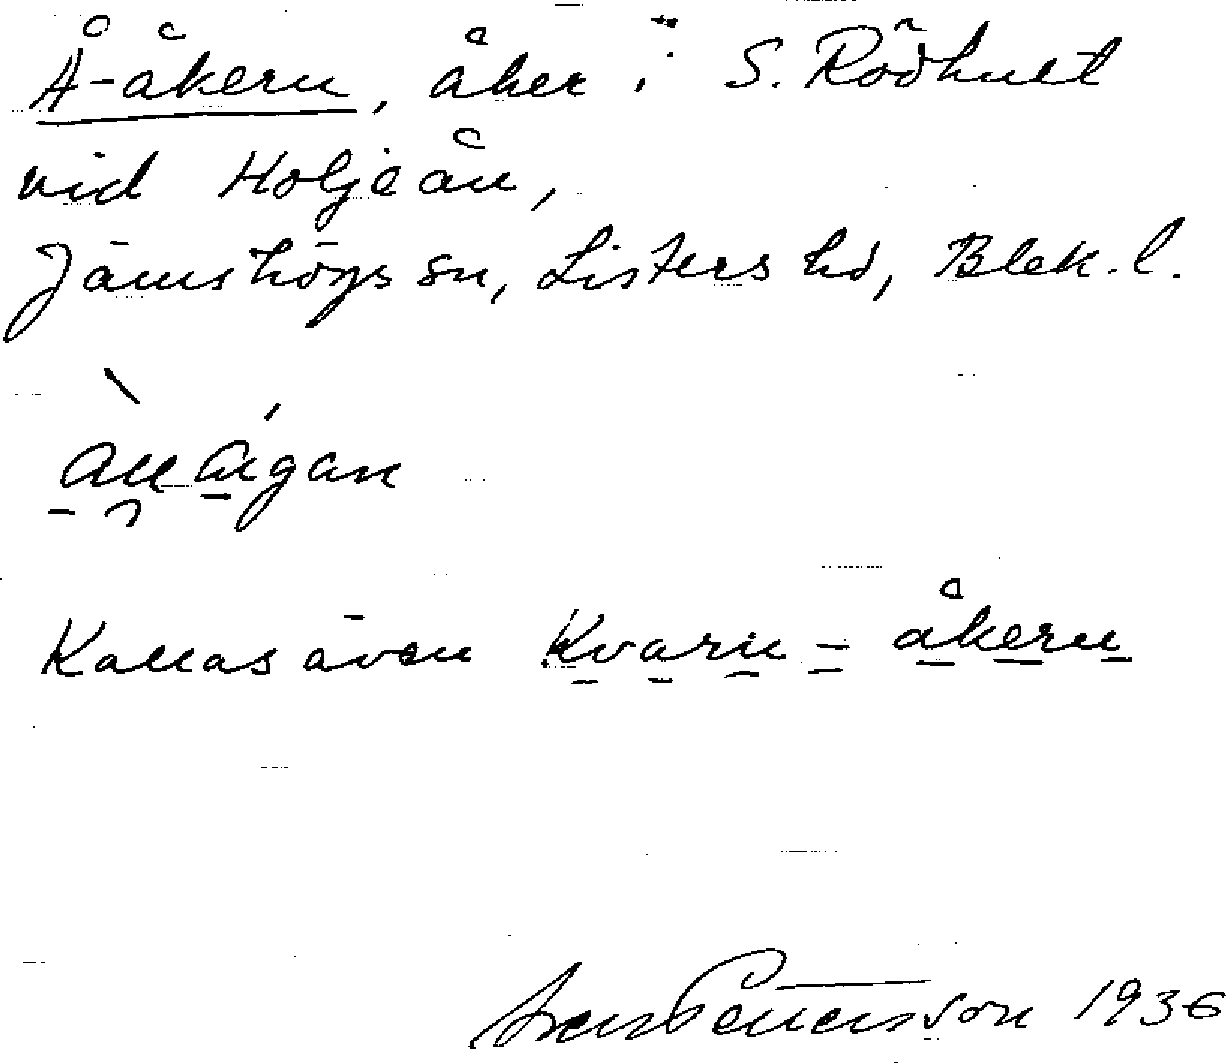 Å-åkern, åker i S. Rödhult
vid Holjeån,
Jämshögs sn, Listers hd, Blek. l.
Kallas även Kvarn-åkern
Sven Pettersson 1936